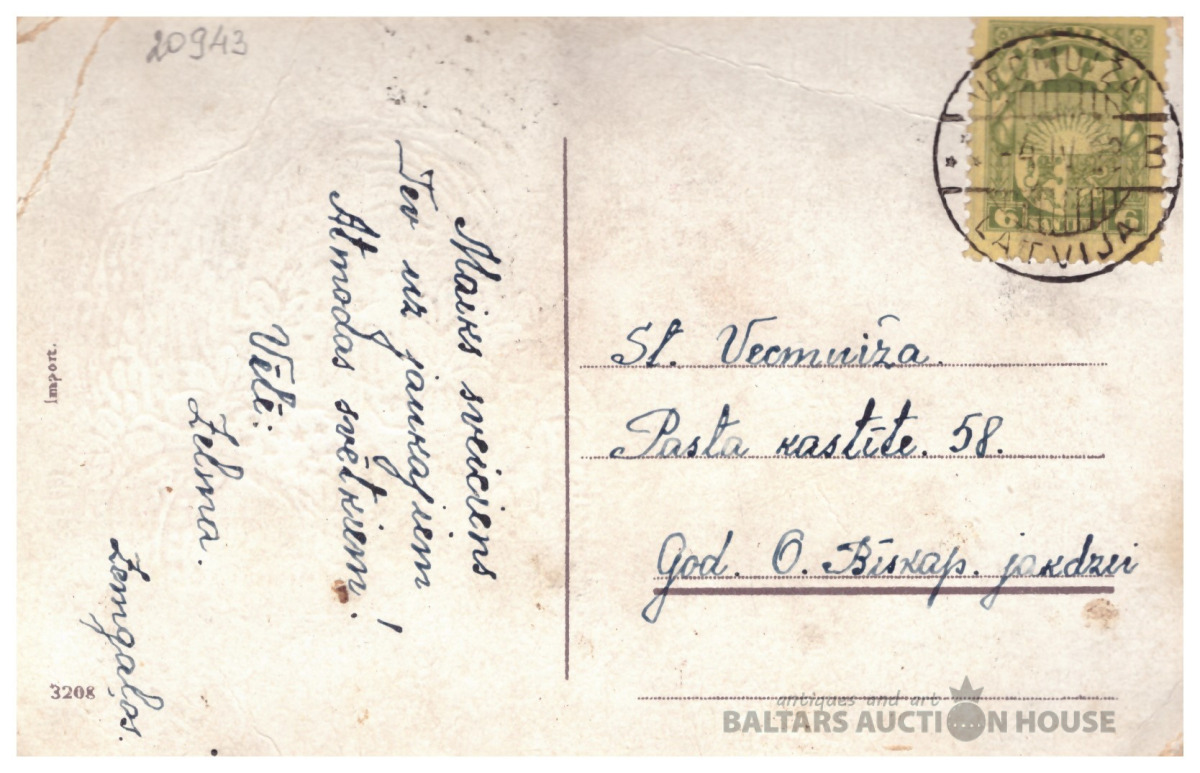 20943
Maiks sveiciens
Tev uz jaukajiem
Atmodas svētkiem!
Vēlē:
Zelma.
Zemgaļos.
Import.
3208
LATVIJA
B
6 6
St. Vecmuiža.
Pasta kastīte. 58.
God. O. Bīskap. jakdzei
antiques and art
BALTARS AUCTION HOUSE